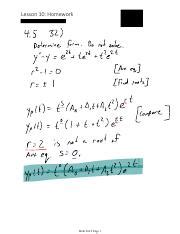 Lesson 10: Homework
4.5 32)
Determine form. Do not solve.
y''-y = e^{2t} + te^{2t} + t^2 e^{2t}
r^2 - 1 = 0 [Aux eq]
r = ± 1 [find roots]
y_p(t) = t^s (A_0 + A_1 t + A_2 t^2) e^{rt}
[Compare]
t^0 (1 + t + t^2) e^{2t}
r = 2 is not a root of
Aux eq. s = 0.
y_p(t) = t^0 (A_0 + A_1 t + A_2 t^2) e^{2t}